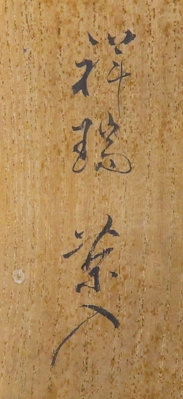 祥瑞茶入